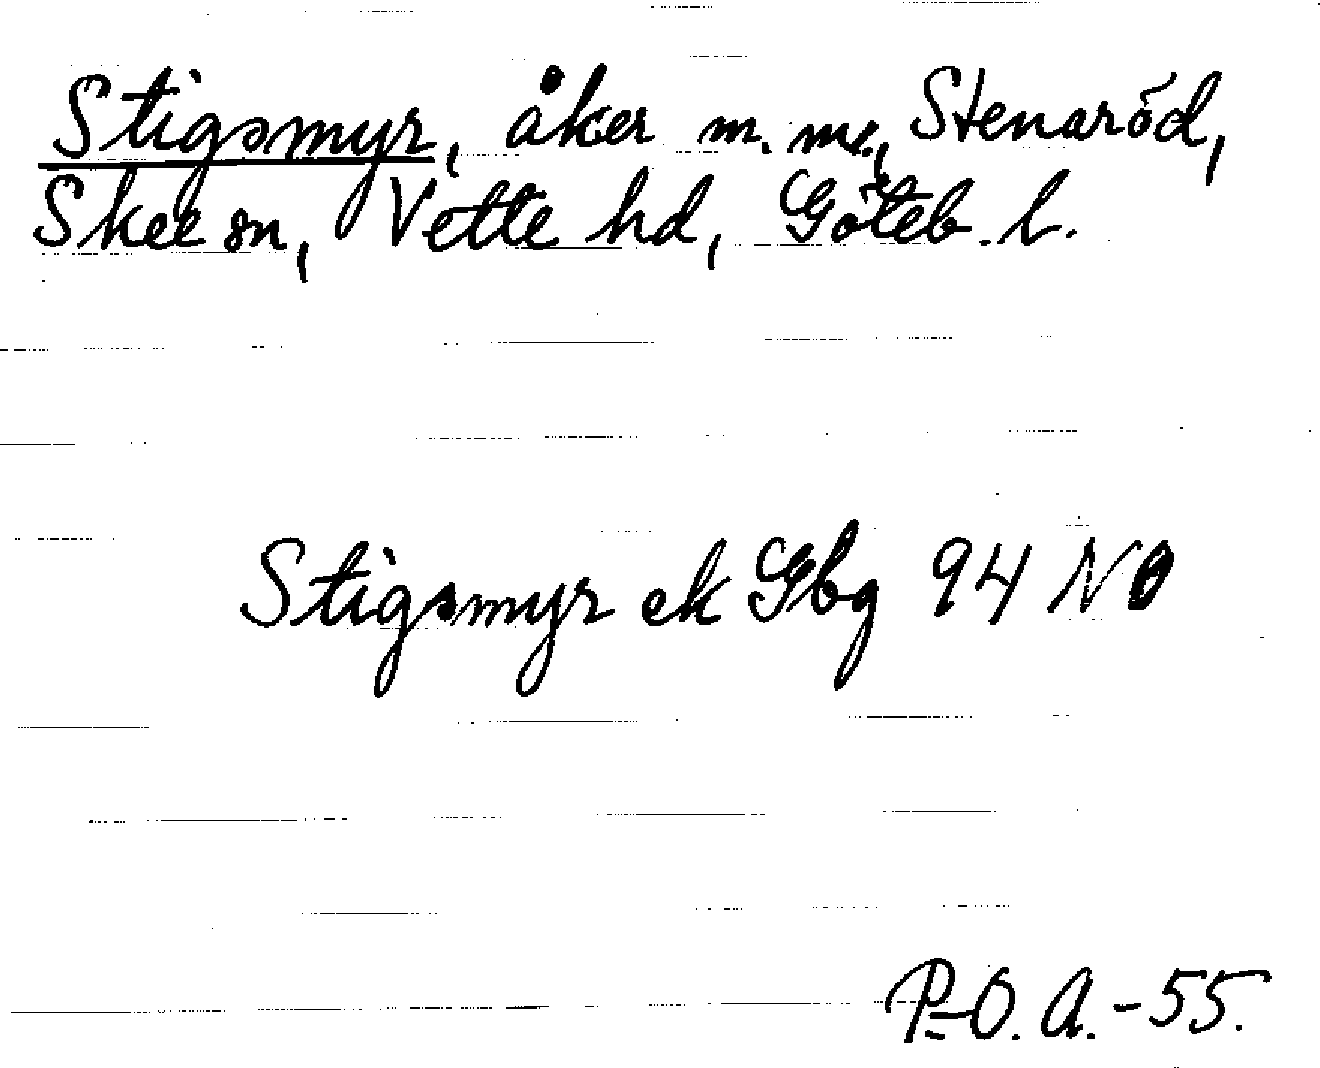 Stigsmyr, åker m.m., Stenaröd,
Skee sn, Vette hd, Göteb. l.
Stigsmyr ek Gbg 94 NO
P-O. A. -55.